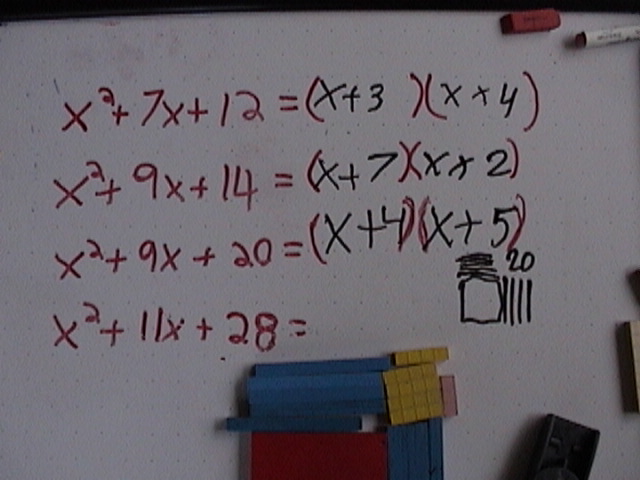 x²+7x+12=(x+3)(x+4)
x²+9x+14=(x+7)(x+2)
x²+9x+20=(x+4)(x+5)
20
x²+11x+28=